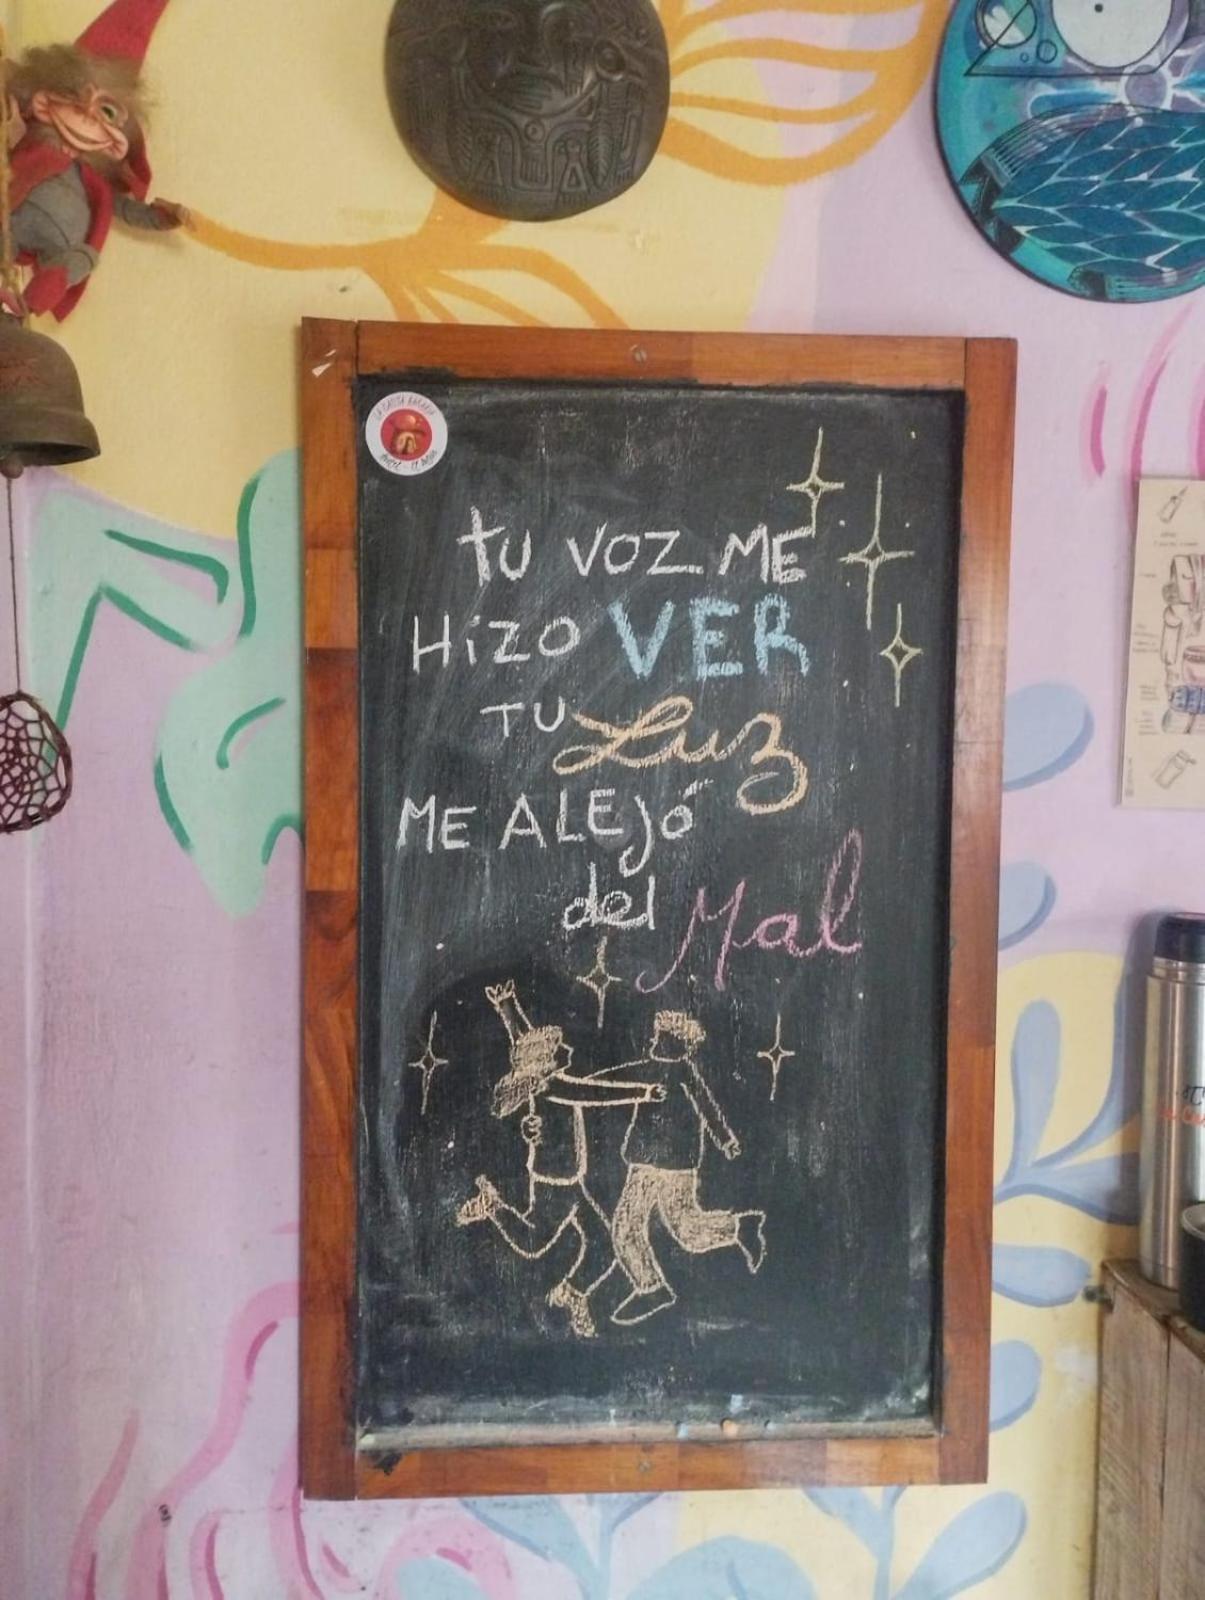 tu voz ME
HizO VER
TU Luz
ME ALEJó
del Mal